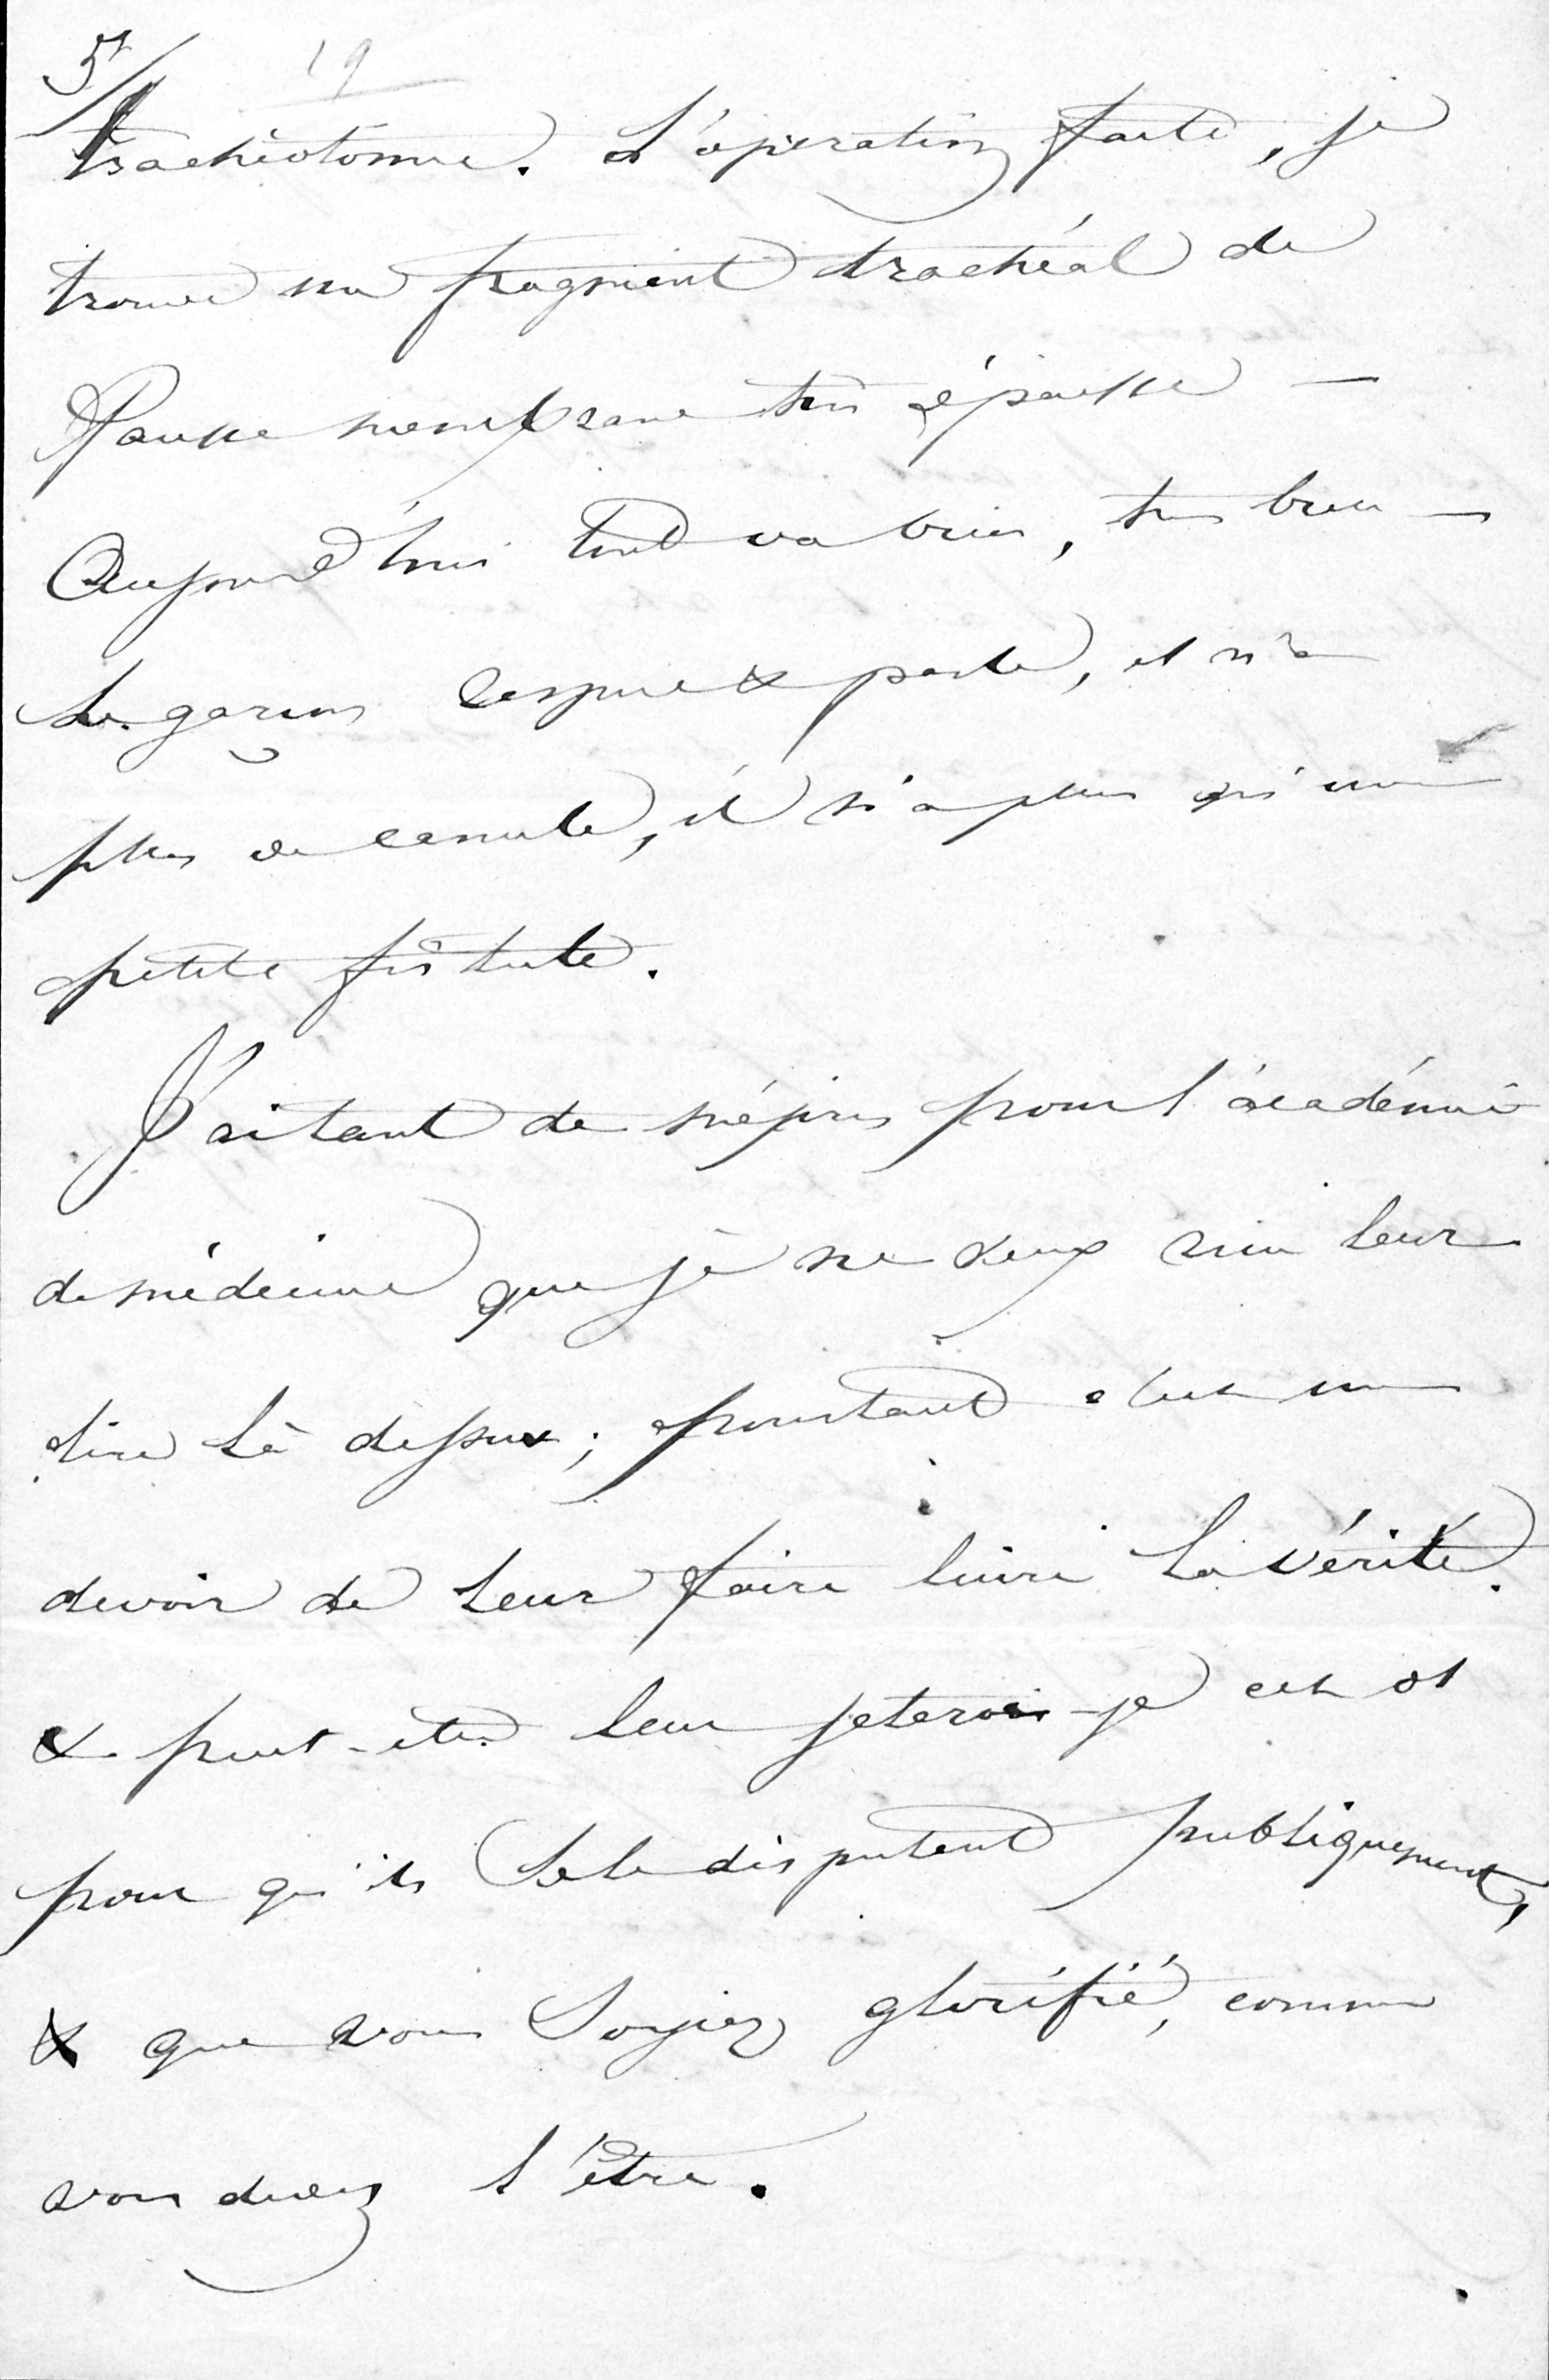 5/ 19
trachéotomie. L'opération faite, je
trouve un fragment trachéal de
fausse membrane très épaisse —
Aujourd'hui tout va bien, très bien —
Le garçon respire & parle, et n'a
plus de canule, il n'a plus qu'une
petite fistule.
J'ai tant de mépris pour l'académie
de médecine que je ne veux rien leur
dire là dessus; pourtant c'est un
devoir de leur faire luire la vérité.
& peut-être leur jeterais-je cet os
pour qu'ils se le disputent publiquement,
& que vous soyiez glorifié, comme
vous devez l'être.